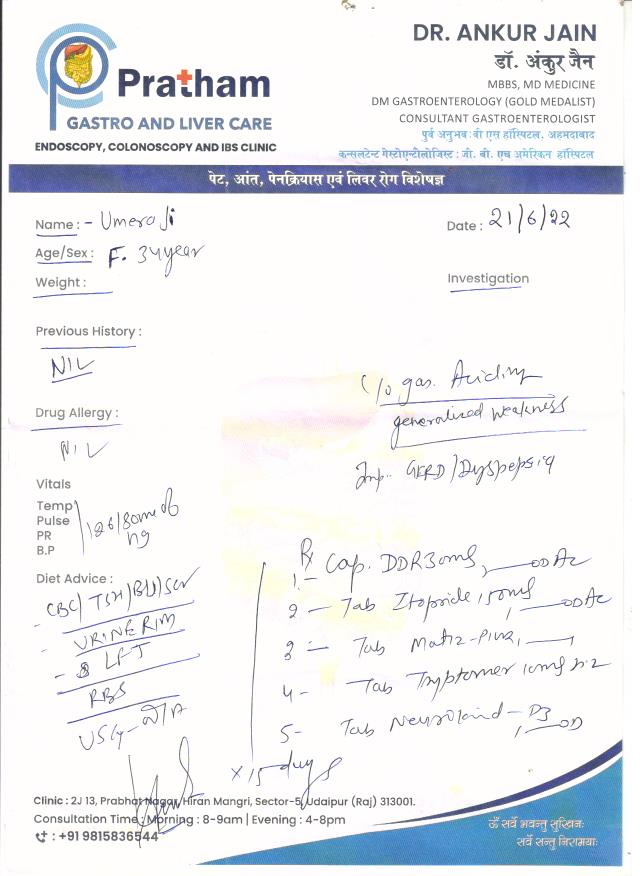 DR. ANKUR JAIN
डॉ. अंकुर जैन
MBBS, MD MEDICINE
DM GASTROENTEROLOGY (GOLD MEDALIST)
CONSULTANT GASTROENTEROLOGIST
पुर्व अनुभव: वी एस हॉस्पिटल, अहमदाबाद
कन्सलटेन्ट गेस्ट्रोएन्टीलोजिस्ट : जी. बी. एच अमेरिकन हॉस्पिटल
Pratham
GASTRO AND LIVER CARE
ENDOSCOPY, COLONOSCOPY AND IBS CLINIC
पेट, आंत, पेनक्रियास एवं लिवर रोग विशेषज्ञ
Name : - Umera Ji
Date : 21/6/22
Age/Sex : F. 34 year
Weight :
Investigation
Previous History :
NIL
C/o gas. Acidity
generalised weakness
Drug Allergy :
NIL
Imp. GERD/Dyspepsia
Vitals
Temp
Pulse
PR
B.P
126/80 mm of
Hg
Rx
1. - Cap. DDR 30mg, OD AC
2 - Tab Itopride 150mg, OD AC
3 - Tab
4 - Tab Tryptomer 10mg
5 - Tab Neurokind - D3, OD
x 15 days
Diet Advice :
- CBC/ TSH/
- URINE R/M
- LFT
RBS
USG -
Clinic : 2J 13, Prabhat Nagar, Hiran Mangri, Sector-5, Udaipur (Raj) 313001.
Consultation Time : Morning : 8-9am | Evening : 4-8pm
: +91 9815836544
ॐ सर्वे भवन्तु सुखिनः
सर्वे सन्तु निरामयाः